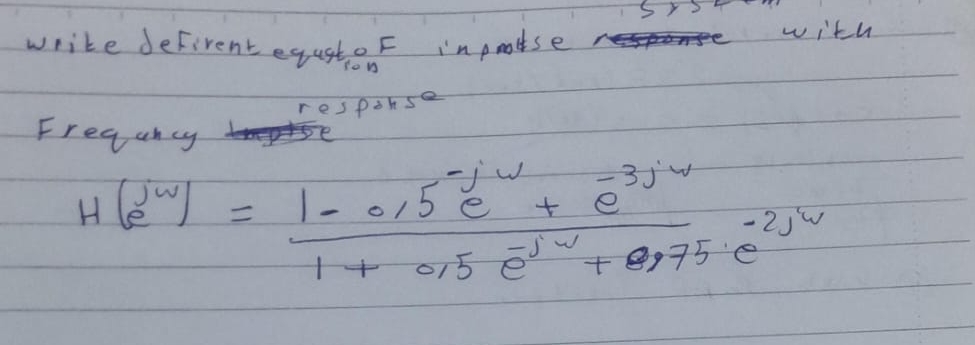 system
write defirent equation of inpoutse with
response
Frequncy
H(e^jw) = 1 - 0,5 e^-jw + e^-3jw
1 + 0,5 e^-jw + 0,75 e^-2jw